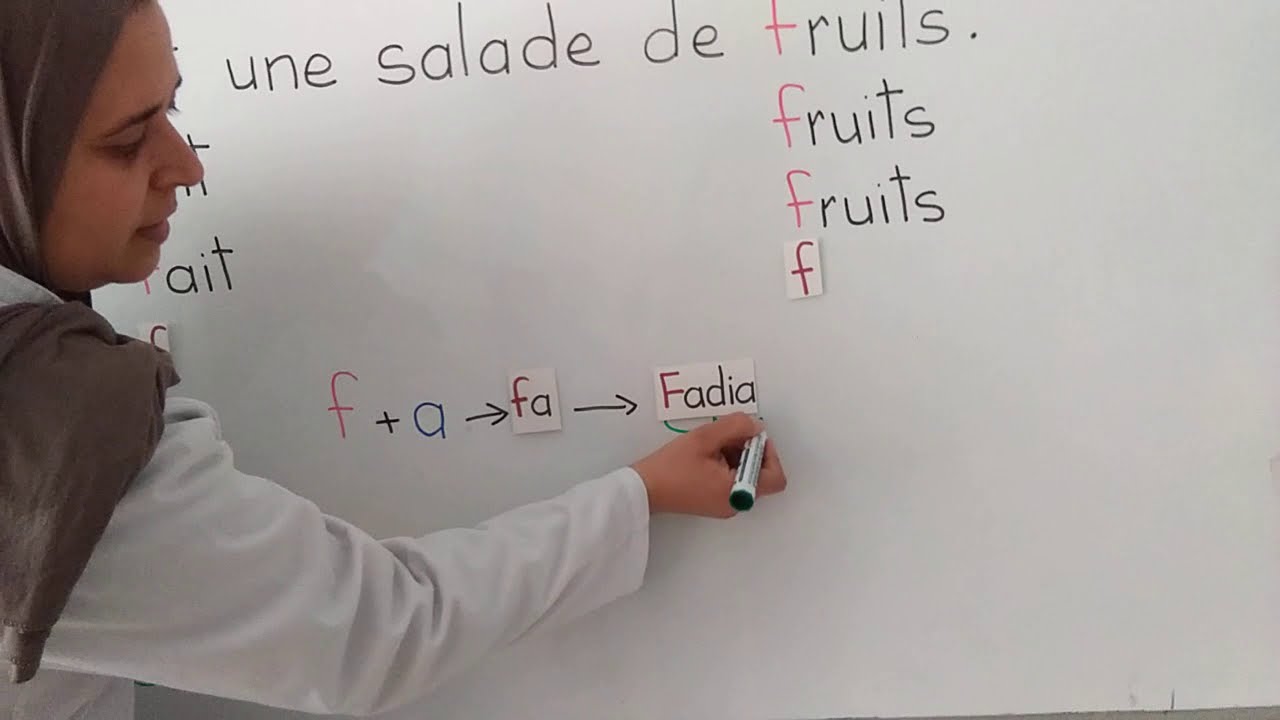 une salade de fruits.
fruits
fruits
fait
f
f
f + a → fa → Fadia